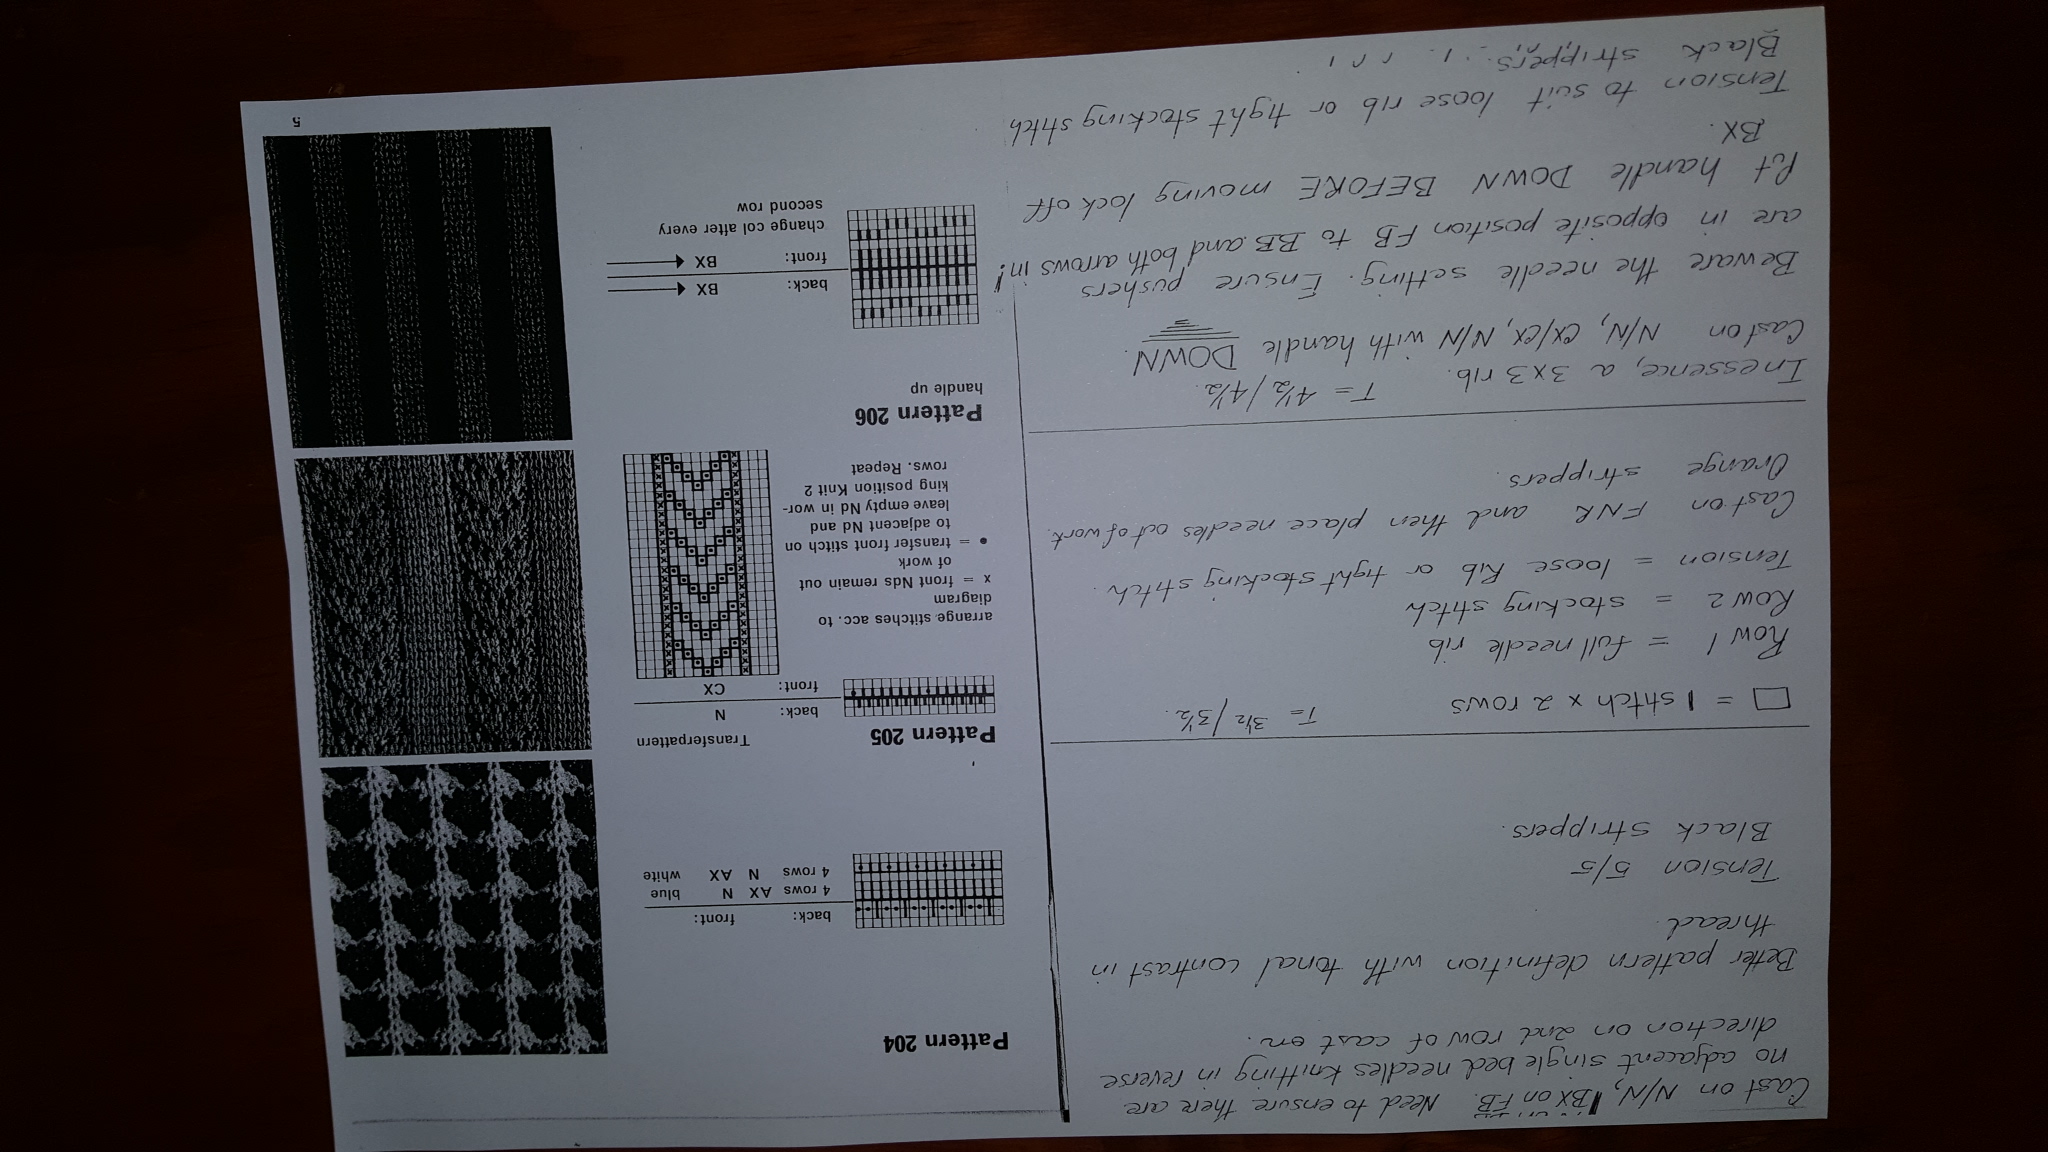 Cast on N/N, BX on FB. Need to ensure there are
no adjacent single bed needles knitting in reverse
direction on 2nd row of cast on.
Better pattern definition with tonal contrast in
thread.
Tension 5/5
Black strippers.
□ = 1 stitch x 2 rows T= 3½/3½.
Row 1 = full needle rib
Row 2 = stocking stitch
Tension = loose Rib or tight stocking stitch.
Cast on FNR and then place needles out of work.
Orange strippers.
In essence, a 3x3 rib. T= 4½/4½.
Cast on N/N, CX/CX, N/N with handle DOWN.
Beware the needle setting. Ensure pushers
are in opposite position FB to BB and both arrows in!
Put handle DOWN BEFORE moving lock off
BX.
Tension to suit loose rib or tight stocking stitch
Black strippers.
Pattern 204
back: front:
4 rows AX N blue
4 rows N AX white
Pattern 205 Transferpattern
back: N
front: CX
arrange stitches acc. to
diagram
x = front Nds remain out
of work
• = transfer front stitch on
to adjacent Nd and
leave empty Nd in wor-
king position Knit 2
rows. Repeat
Pattern 206
handle up
back: BX
front: BX
change col after every
second row
5